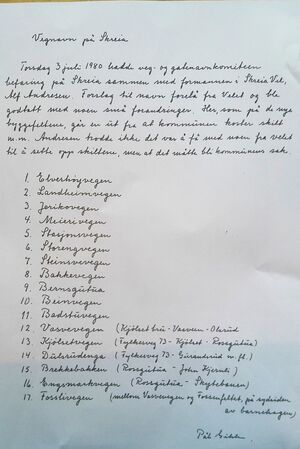 Vegnavn på Skreia
Torsdag 3 juli 1980 hadde veg- og gatenavnkomiteen
befaring på Skreia sammen med formannen i Skreia Vel,
Alf Andresen. Forslag til navn forelå fra Velet og ble
godtatt med noen små forandringer. Her, som på de nye
byggefeltene, går en ut fra at kommunen koster skilt
m.m. Andresen trodde ikke det var å få med noen fra velet
til å sette opp skiltene, men at det måtte bli kommunens sak.
1. Elverhöyvegen
2. Landheimvegen
3. Jerikovegen
4. Meierivegen
5. Stasjonsvegen
6. Storengvegen
7. Steinsvevegen
8. Bakkevegen
9. Bernsgutua
10. Beinvegen
11. Badstuvegen
12. Vasvevegen (Kjölset bru - Vasvein - Olerud
13. Kjölsetvegen (Fylkesveg 73 - Kjölset - Rosgutua)
14. Dulsrudenga (Fylkesveg 73 - Gurandsrud m. fl.)
15. Brekkebakken (Rosgutua - John Kjernli)
16. Engsmarkvegen (Rosgutua - Skytebanen)
17. Fosslivegen (mellom Vasvevegen og Fossenfeltet, på sydsiden
av barnehagen)
Pål